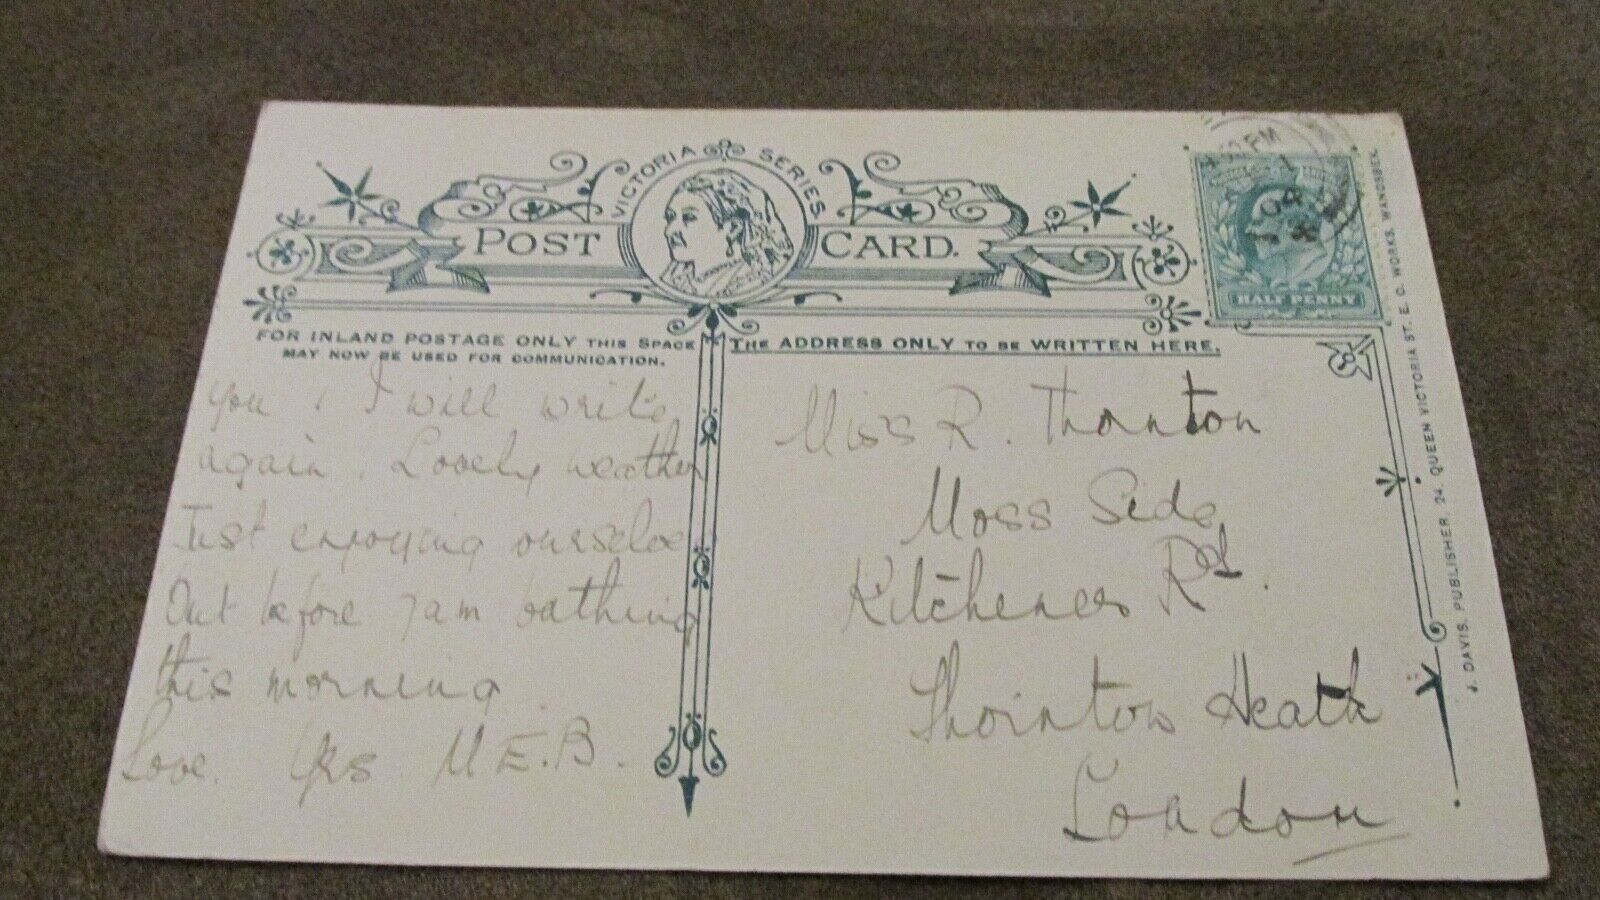 VICTORIA SERIES.
POST CARD.
FOR INLAND POSTAGE ONLY THIS SPACE
MAY NOW BE USED FOR COMMUNICATION.
THE ADDRESS ONLY TO BE WRITTEN HERE.
you. I will write
again. Lovely weather
Just enjoying ourselves
Out before 7am bathing
this morning
Love. Yrs. M E.B.
Miss R. Thornton
Moss Side
Kitchener Rd.
Thornton Heath
London
PM
04
HALF PENNY
J. DAVIS, PUBLISHER, 24, QUEEN VICTORIA ST. E. C. WORKS, WANDSBEK.